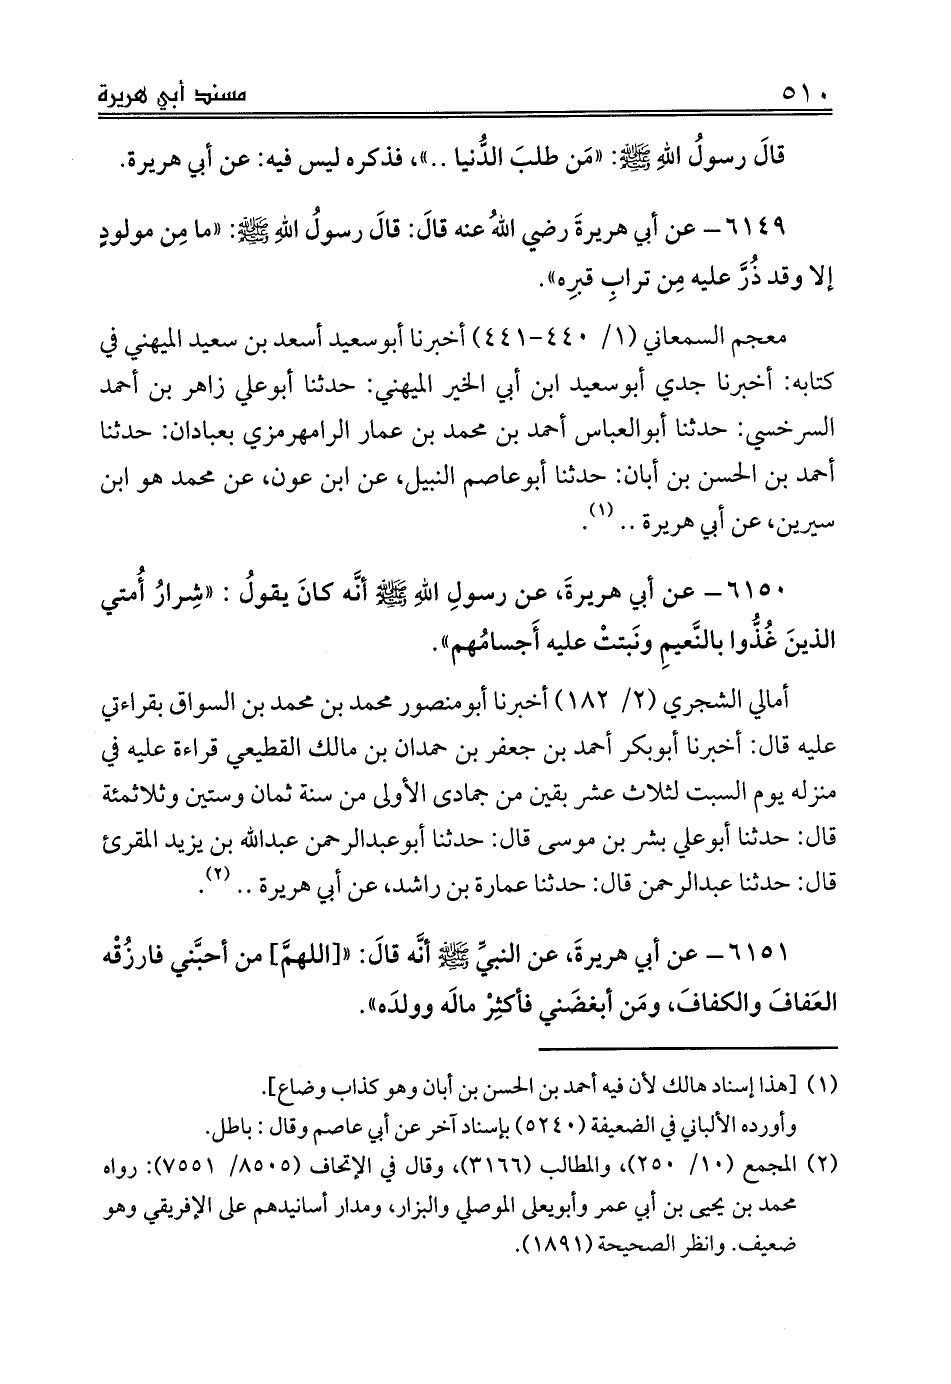 ٥١٠ مسند أبي هريرة
قالَ رسولُ اللهِ ﷺ: «مَن طلبَ الدُّنيا ..»، فذكره ليس فيه: عن أبي هريرة.
٦١٤٩ – عن أبي هريرةَ رضي اللهُ عنه قالَ: قالَ رسولُ اللهِ ﷺ: «ما مِن مولودٍ
إلا وقد ذُرَّ عليه مِن ترابِ قبرِه».
معجم السمعاني (١/ ٤٤٠-٤٤١) أخبرنا أبوسعيد أسعد بن سعيد الميهني في
كتابه: أخبرنا جدي أبوسعيد ابن أبي الخير الميهني: حدثنا أبوعلي زاهر بن أحمد
السرخسي: حدثنا أبوالعباس أحمد بن محمد بن عمار الرامهرمزي بعبادان: حدثنا
أحمد بن الحسن بن أبان: حدثنا أبوعاصم النبيل، عن ابن عون، عن محمد هو ابن
سيرين، عن أبي هريرة .. (١).
٦١٥٠ – عن أبي هريرةَ، عن رسولِ اللهِ ﷺ أنَّه كانَ يقولُ : «شِرارُ أُمتي
الذينَ غُذُّوا بالنَّعيمِ ونَبتتْ عليه أَجسامُهم».
أمالي الشجري (٢/ ١٨٢) أخبرنا أبومنصور محمد بن محمد بن السواق بقراءتي
عليه قال: أخبرنا أبوبكر أحمد بن جعفر بن حمدان بن مالك القطيعي قراءة عليه في
منزله يوم السبت لثلاث عشر بقين من جمادى الأولى من سنة ثمان وستين وثلاثمئة
قال: حدثنا أبوعلي بشر بن موسى قال: حدثنا أبوعبدالرحمن عبدالله بن يزيد المقرئ
قال: حدثنا عبدالرحمن قال: حدثنا عمارة بن راشد، عن أبي هريرة .. (٢).
٦١٥١ – عن أبي هريرةَ، عن النبيِّ ﷺ أنَّه قالَ: «[اللهمَّ] من أحبَّني فارزُقْه
العَفافَ والكفافَ، ومَن أبغضَني فأكثِرْ مالَه وولدَه».
(١) [هذا إسناد هالك لأن فيه أحمد بن الحسن بن أبان وهو كذاب وضاع].
وأورده الألباني في الضعيفة (٥٢٤٠) بإسناد آخر عن أبي عاصم وقال : باطل.
(٢) المجمع (١٠/ ٢٥٠)، والمطالب (٣١٦٦)، وقال في الإتحاف (٨٥٠٥/ ٧٥٥١): رواه
محمد بن يحيى بن أبي عمر وأبويعلى الموصلي والبزار، ومدار أسانيدهم على الإفريقي وهو
ضعيف. وانظر الصحيحة (١٨٩١).